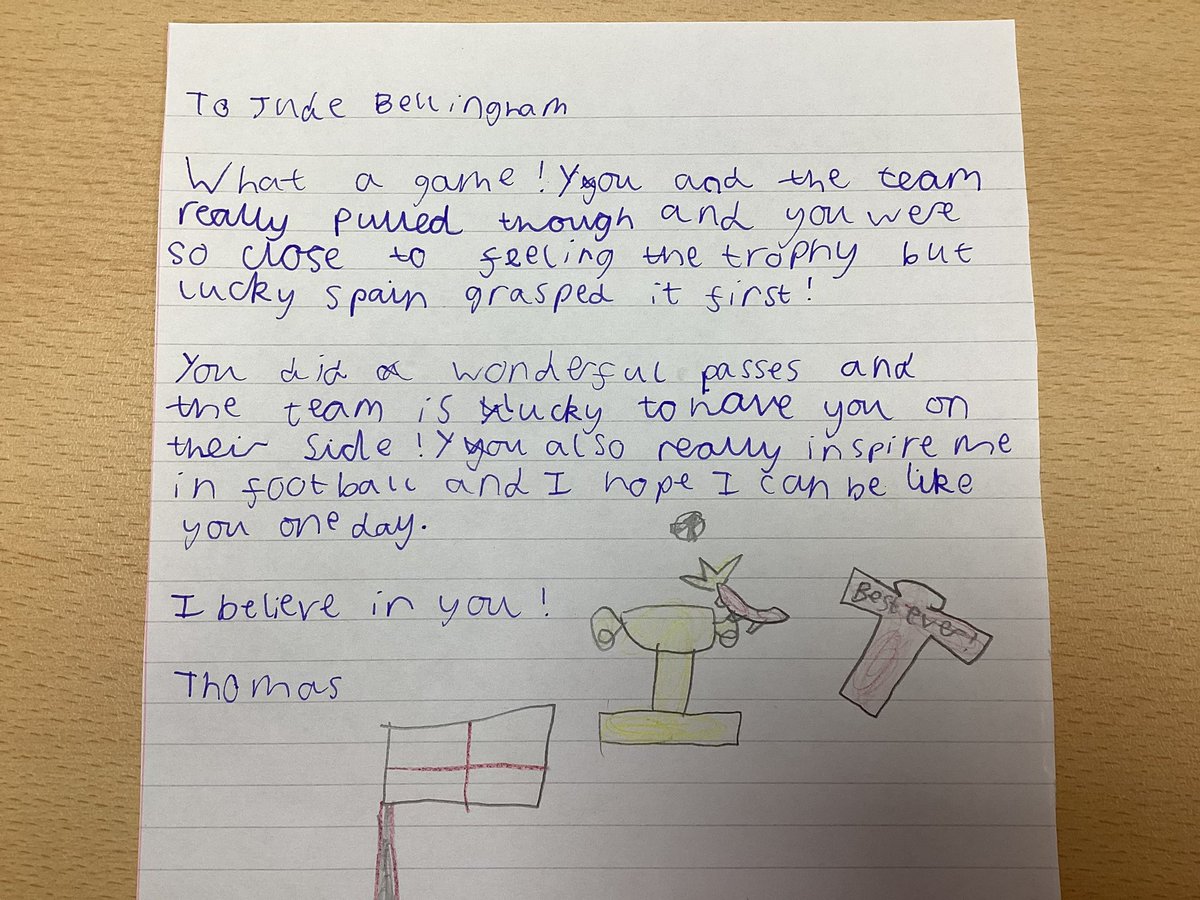 To Jude Bellingram
What a game! You and the team
really pulled though and you were
so close to feeling the trophy but
lucky spain grasped it first!
You did a wonderful passes and
the team is lucky to have you on
their side! You also really inspire me
in football and I hope I can be like
you one day.
I believe in you!
Thomas
Best ever!